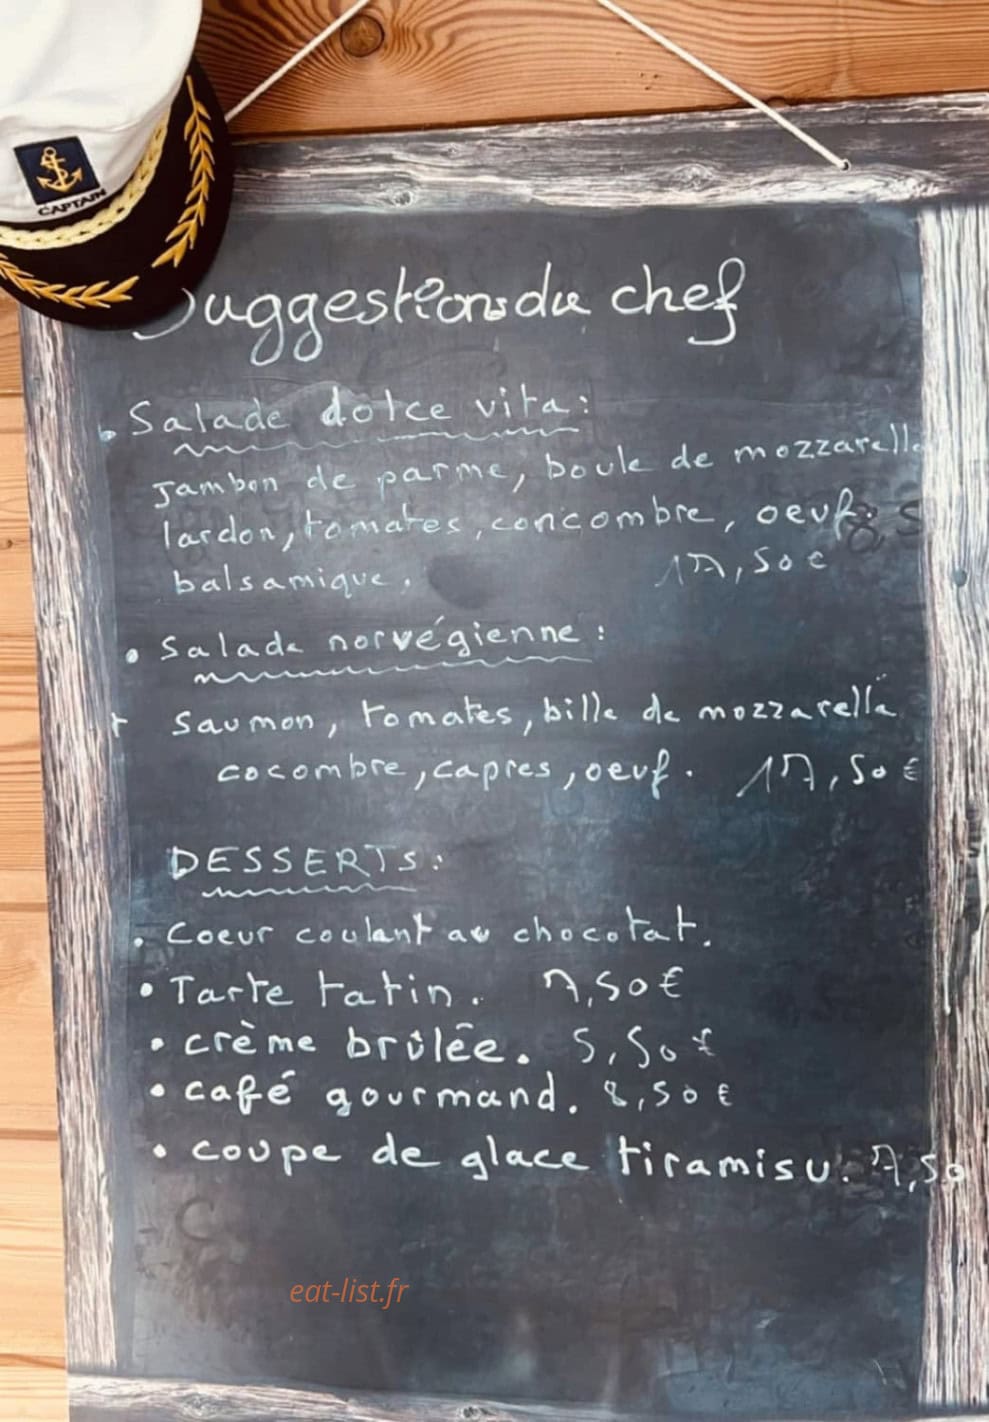 CAPTAIN
Suggestions du chef
• Salade dolce vita :
Jambon de parme, boule de mozzarella
lardon, tomates, concombre, oeuf.
balsamique. 17,50 €
• Salade norvégienne :
saumon, tomates, bille de mozzarella
cocombre, capres, oeuf. 17,50 €
DESSERTS :
• Coeur coulant au chocotat.
• Tarte tatin. 7,50 €
• crème brûlée. 5,50 €
• café gourmand. 8,50 €
• coupe de glace tiramisu. 7,50
eat-list.fr